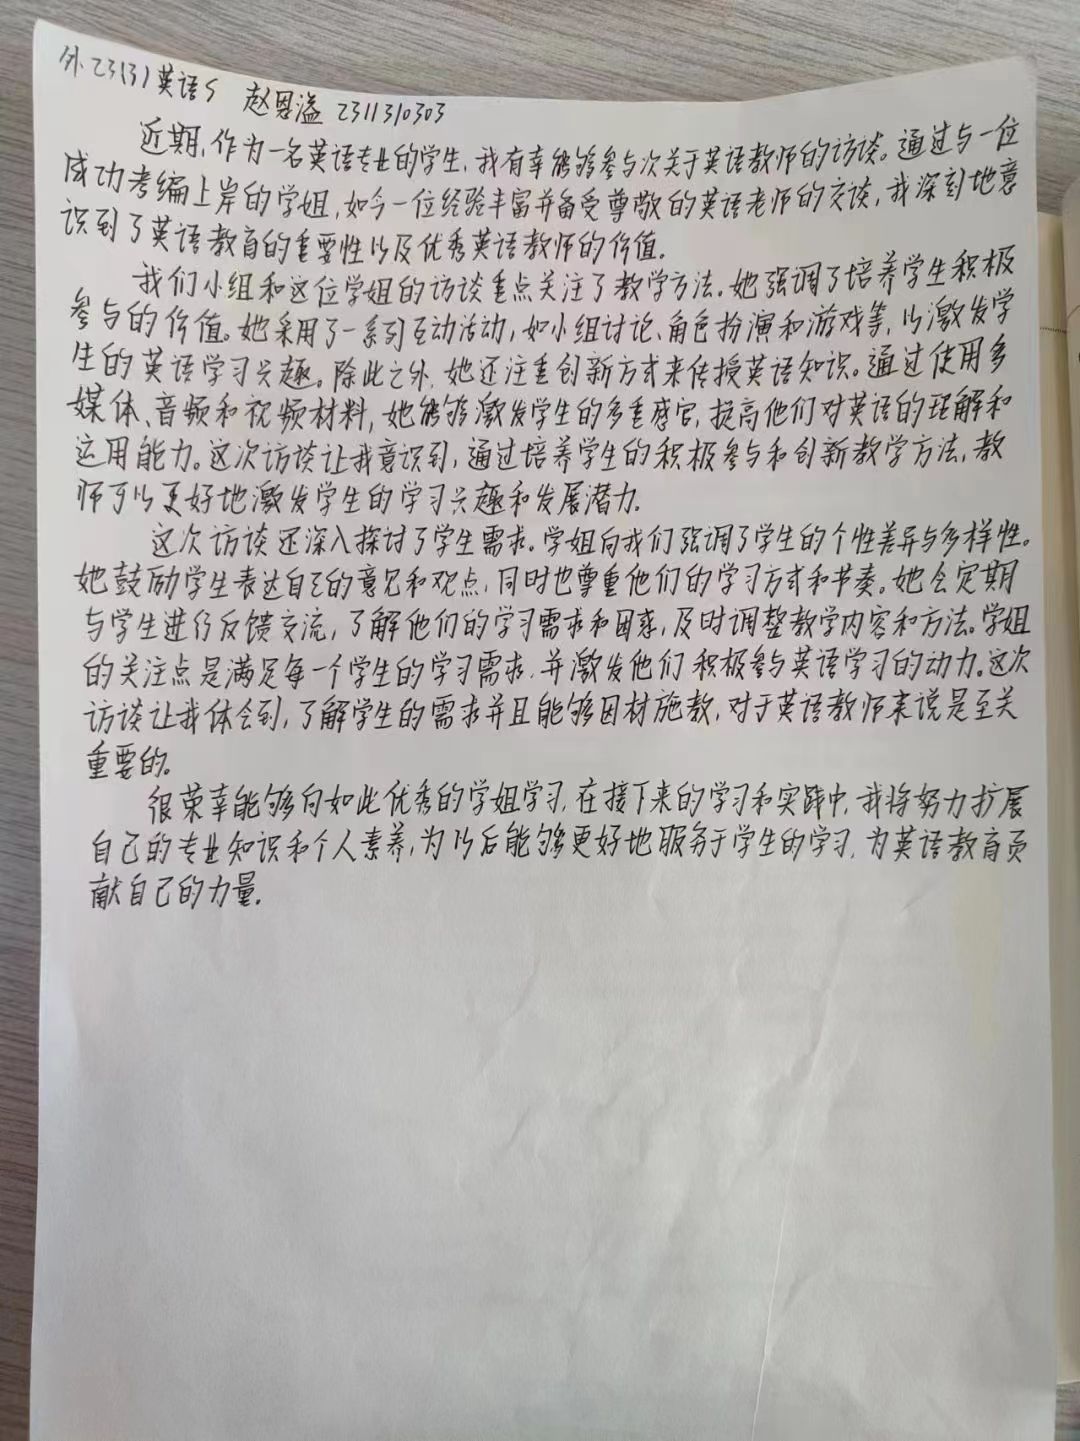 外23(3)英语S 赵恩溢 2311310303
近期,作为一名英语专业的学生,我有幸能够参与次关于英语教师的访谈。通过与一位
成功考编上岸的学姐,如今一位经验丰富并备受尊敬的英语老师的交谈,我深刻地意
识到了英语教育的重要性以及优秀英语教师的价值.
我们小组和这位学姐的访谈重点关注了教学方法.她强调了培养学生积极
参与的价值。她采用了一系列互动活动,如小组讨论、角色扮演和游戏等,以激发学
生的英语学习兴趣。除此之外,她还注重创新方式来传授英语知识。通过使用多
媒体、音频和视频材料,她能够激发学生的多重感官,提高他们对英语的理解和
运用能力。这次访谈让我意识到,通过培养学生的积极参与和创新教学方法,教
师可以更好地激发学生的学习兴趣和发展潜力.
这次访谈还深入探讨了学生需求.学姐向我们强调了学生的个性差异与多样性。
她鼓励学生表达自己的意见和观点,同时也尊重他们的学习方式和节奏。她会定期
与学生进行反馈交流,了解他们的学习需求和困惑,及时调整教学内容和方法。学姐
的关注点是满足每一个学生的学习需求,并激发他们积极参与英语学习的动力.这次
访谈让我体会到,了解学生的需求并且能够因材施教,对于英语教师来说是至关
重要的。
很荣幸能够向如此优秀的学姐学习,在接下来的学习和实践中,我将努力扩展
自己的专业知识和个人素养,为以后能够更好地服务于学生的学习,为英语教育贡
献自己的力量.